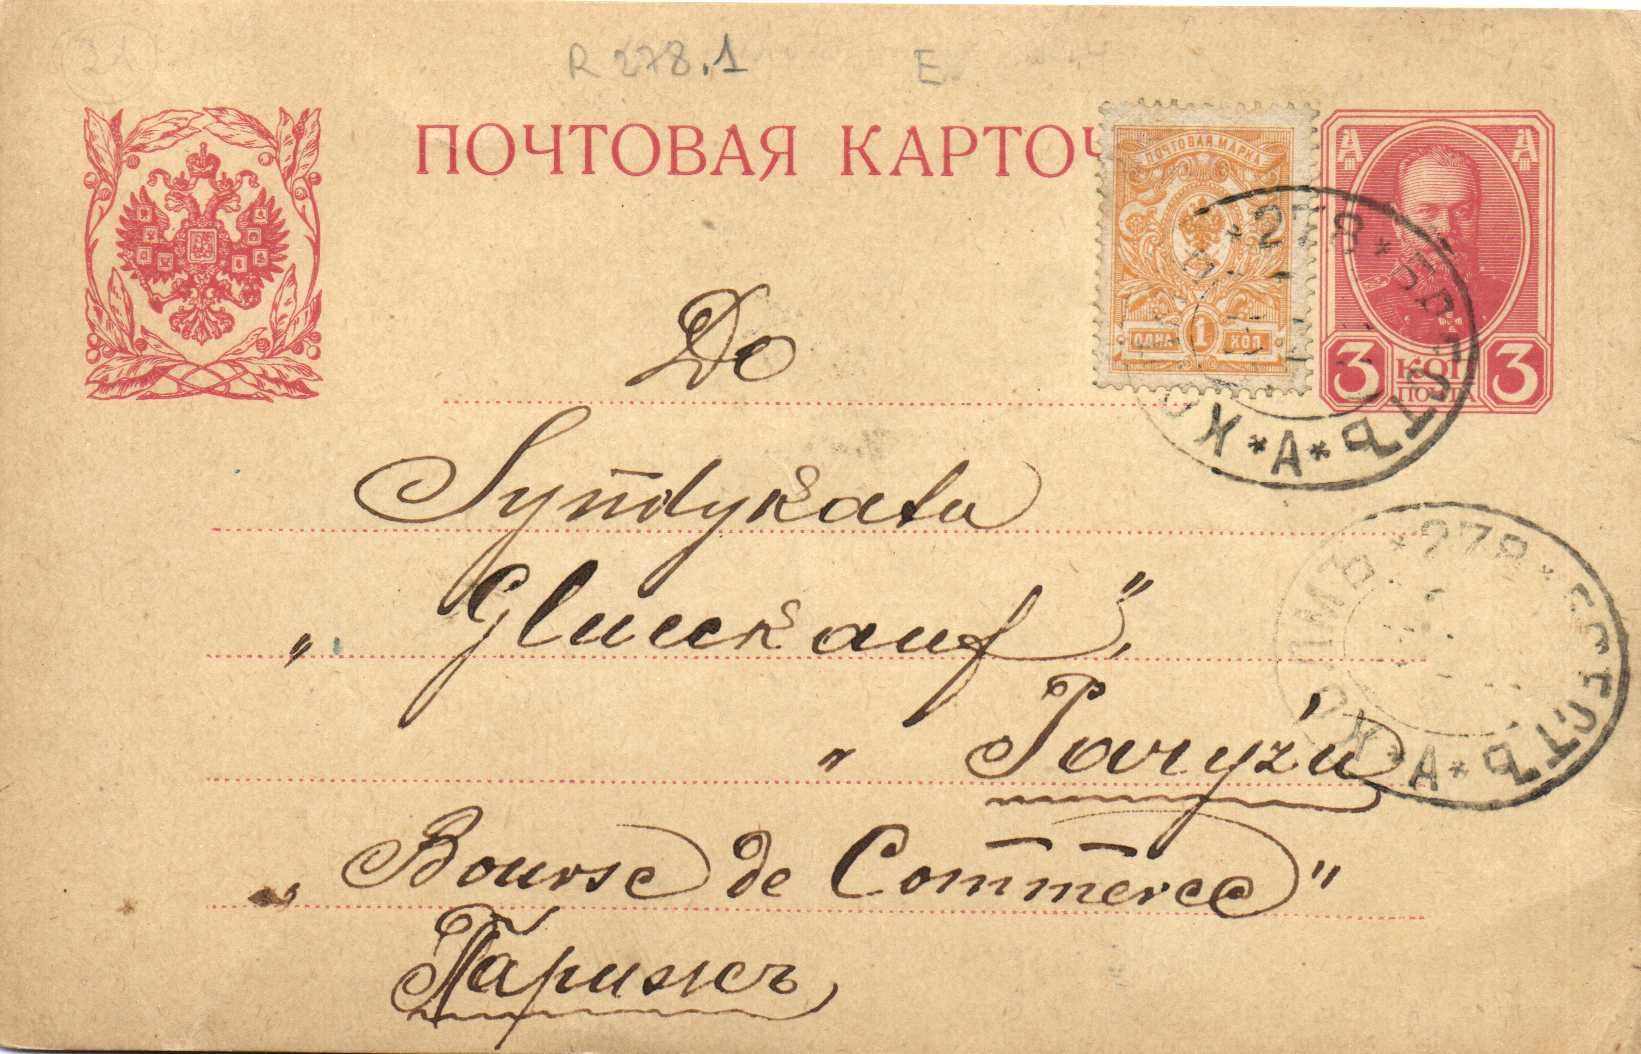 R 278.1 E
ПОЧТОВАЯ КАРТОЧ
ПОЧТОВАЯ МАРКА
ОДНА 1 КОП
А А
3 КОП 3
ПОЧТА
*278*
*А*
До
Syndykatu
„Glueckauf”
w Paryżu
„Bourse de Commerce”
Парижъ
*278*
*А*